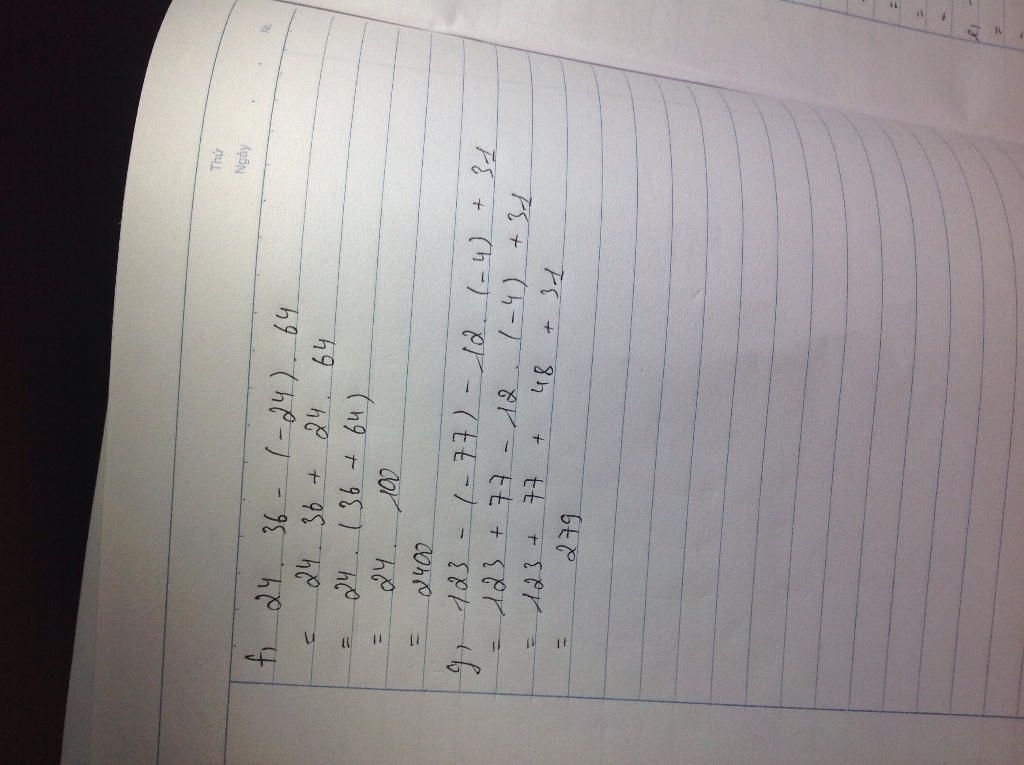 Thứ
Ngày
No.
f, 24 . 36 - (-24) . 64
= 24 . 36 + 24 . 64
= 24 . (36 + 64)
= 24 . 100
= 2400
g, 123 - (-77) - 12 . (-4) + 31
= 123 + 77 - 12 . (-4) + 31
= 123 + 77 + 48 + 31
= 279